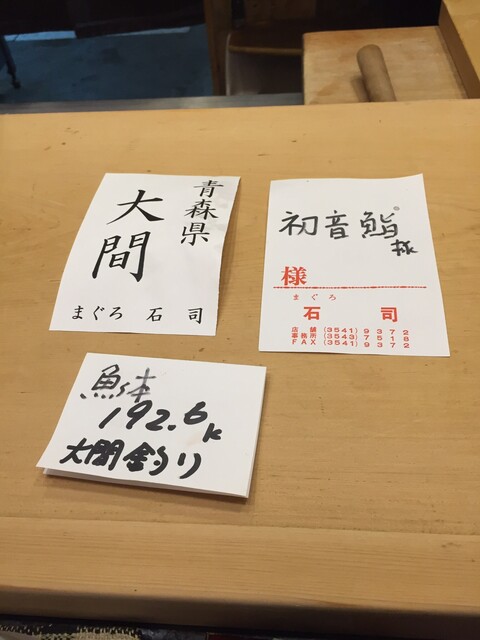 青森県
大間
まぐろ 石司
初音鮨
様
様
まぐろ
石司
店舗 (3541) 9372
事務所 (3543) 7518
FAX (3541) 9372
192.6k
大間釣り